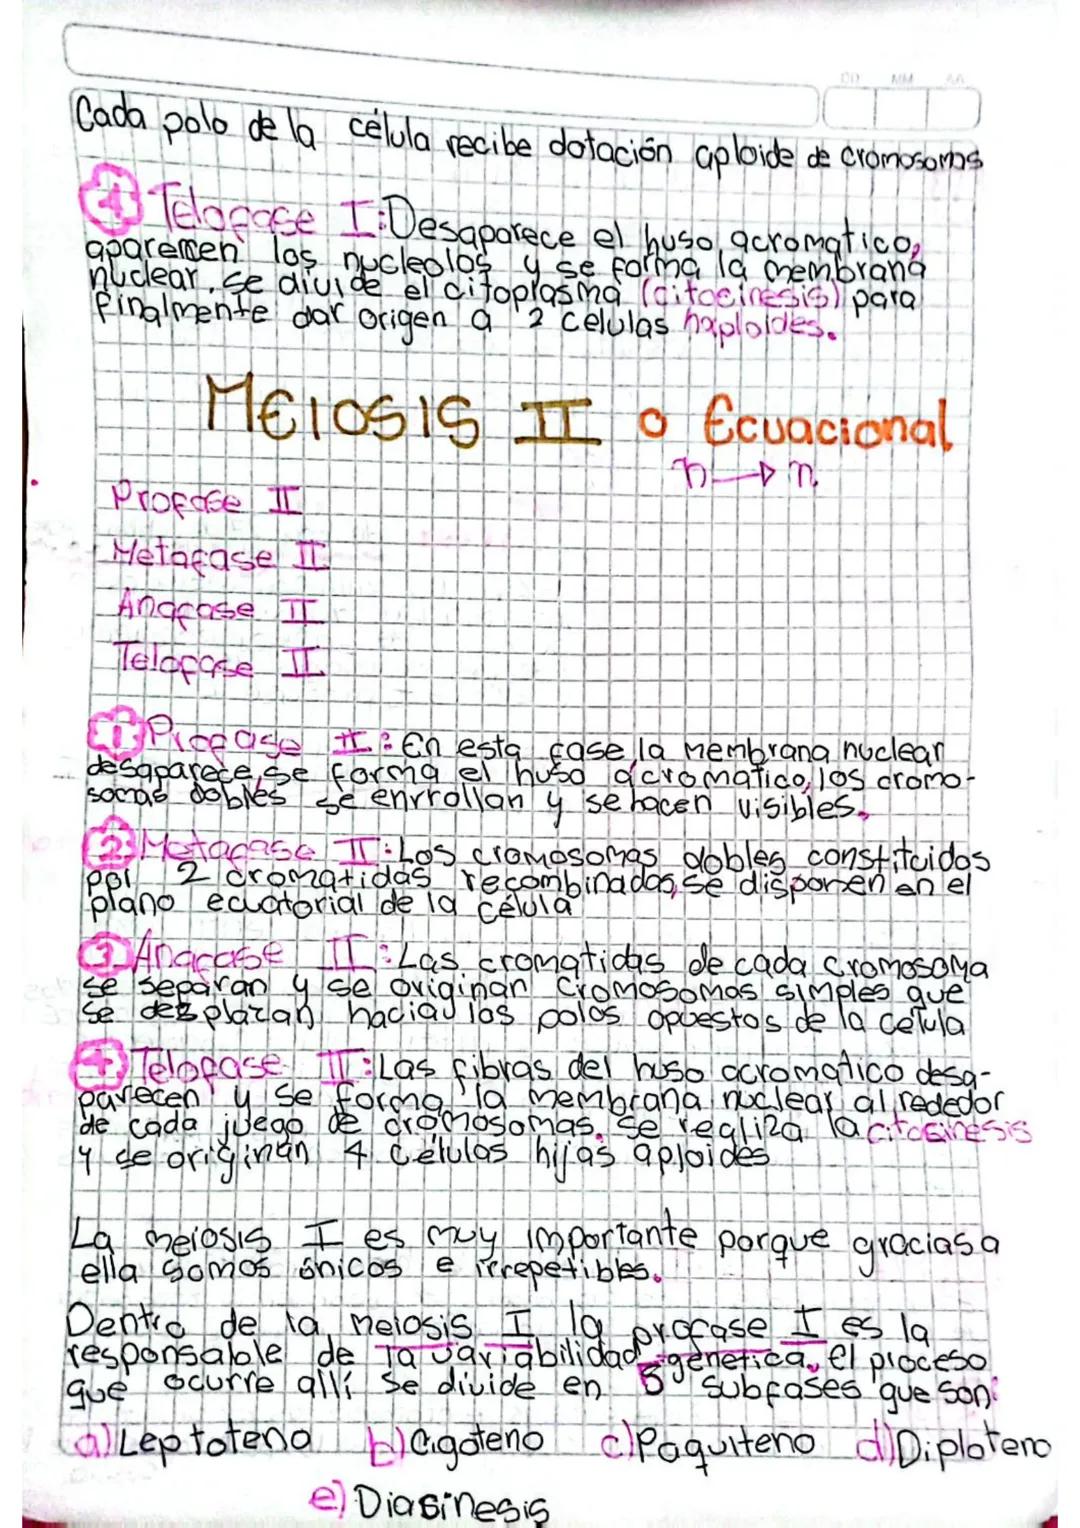 DD MM AA
Cada polo de la célula recibe dotación aploide de cromosomas
4 Telofase I: Desaparece el huso acromatico,
aparecen los nucleolos y se forma la membrana
nuclear. se divide el citoplasma (citocinesis) para
finalmente dar origen a 2 celulas haploides.
MEIOSIS II o Ecuacional
n → n
Profase II
Metafase II
Anafase II
Telofase II
1 Profase II: En esta fase la membrana nuclear
desaparece, se forma el huso acromatico, los cromo-
somas dobles se enrrollan y se hacen visibles.
2 Metafase II: Los cromosomas dobles constituidos
por 2 cromatidas recombinadas, se disponen en el
plano ecuatorial de la célula
3 Anafase II: Las cromatidas de cada cromosoma
se separan y se originan cromosomas simples que
se desplazan hacia los polos opuestos de la celula
4 Telofase II: Las fibras del huso acromatico desa-
parecen y se forma la membrana nuclear al rededor
de cada juego de cromosomas. Se realiza la citosinesis
y se originan 4 células hijas aploides
La meiosis I es muy importante porque gracias a
ella somos únicos e irrepetibles.
Dentro de la meiosis I la profase I es la
responsable de la variabilidad genetica. El proceso
que ocurre allí se divide en 5 subfases que son:
a) Leptoteno b) Cigoteno c) Paquiteno d) Diploteno
e) Diasinesis